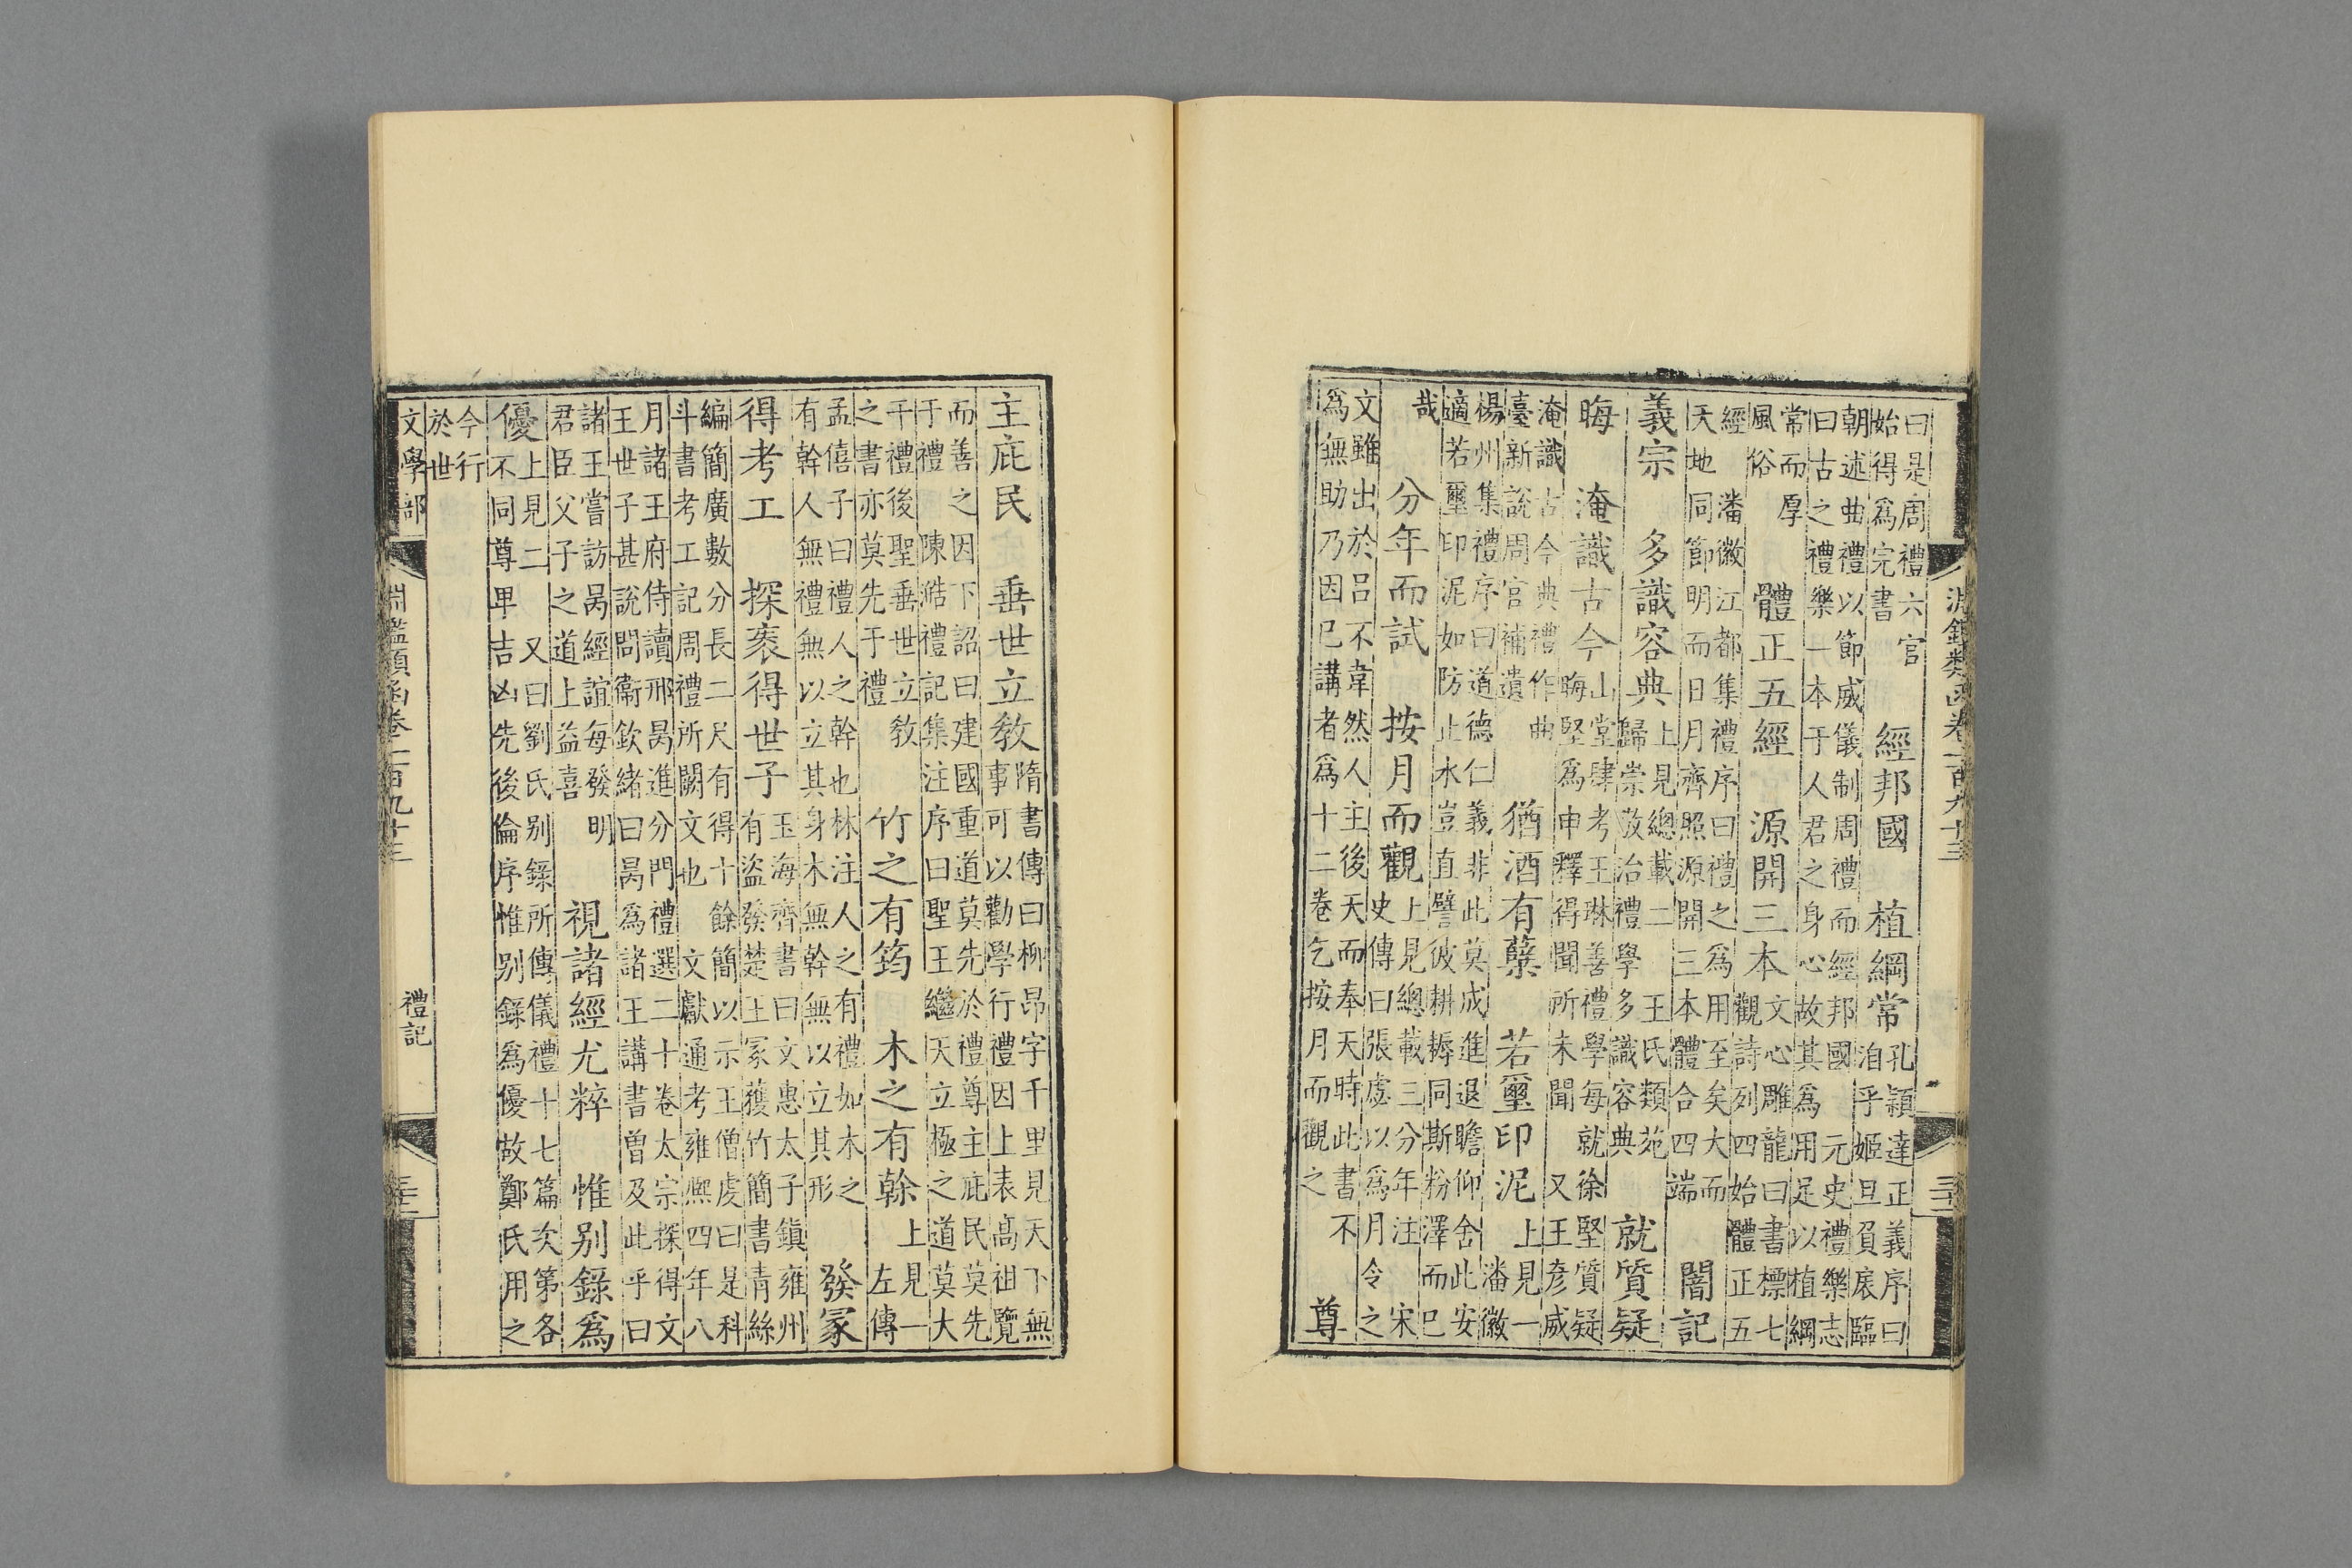 淵鑑類函卷一百九十三
曰是周禮六官
始得為完書
經邦國　植綱常
孔穎達正義序曰
洎乎姬旦負扆臨
朝述曲禮以節威儀制周禮而經邦國　元史禮樂志
曰古之禮樂一本于人君之身心故其為用足以植綱
常而厚
風俗
體正五經　源開三本
文心雕龍曰書標七
觀詩列四始體正五
經　潘徽江都集禮序曰禮之為用至矣大而
天地同節明而日月齊照源開三本體合四端
闇記
義宗　多識容典
上見總載二　王氏類苑
歸崇敬治禮學多識容典
就質疑
晦　淹識古今
山堂肆考王琳善禮學每就徐堅質疑
晦堅為申釋得聞所未聞　又王彥威
淹識古今典禮作曲
臺新說周官補遺
猶酒有櫱　若璽印泥
上見一
潘徽
楊州集禮序曰道德仁義非此莫成進退瞻仰舍此安
適若璽印泥如防止水豈直譬彼耕耨同斯粉澤而已
哉
分年而試　按月而觀
上見總載三分年注　宋
史傳曰張虙以為月令之
文雖出於呂不韋然人主後天而奉天時此書不
為無助乃因已講者為十二卷乞按月而觀之
尊
主庇民　垂世立教
隋書傳曰柳昂字千里見天下無
事可以勸學行禮因上表高祖覽
而善之因下詔曰建國重道莫先於禮尊主庇民莫先
于禮　陳澔禮記集注序曰聖王繼天立極之道莫大
于禮後聖垂世立教
之書亦莫先于禮
竹之有筠　木之有幹
上見一
左傳
孟僖子曰禮人之幹也林注人之有禮如木之
有幹人無禮無以立其身木無幹無以立其形
發冢
得考工　探袠得世子
玉海齊書曰文惠太子鎮雍州
有盜發楚王冢獲竹簡書青絲
編簡廣數分長二尺有得十餘簡以示王僧虔曰是科
斗書考工記周禮所闕文也　文獻通考雍熙四年八
月諸王府侍讀邢昺進分門禮選二十卷太宗探得文
王世子甚說問衞欽緒曰昺為諸王講書曾及此乎曰
諸王嘗訪昺經誼每發明
君臣父子之道上益喜
視諸經尤粹　惟別錄為
優
上見二　又曰劉氏別錄所傳儀禮十七篇次第各
不同尊卑吉凶先後倫序惟別錄為優故鄭氏用之
今行
於世
文學部
淵鑑類函卷一百九十三
禮記